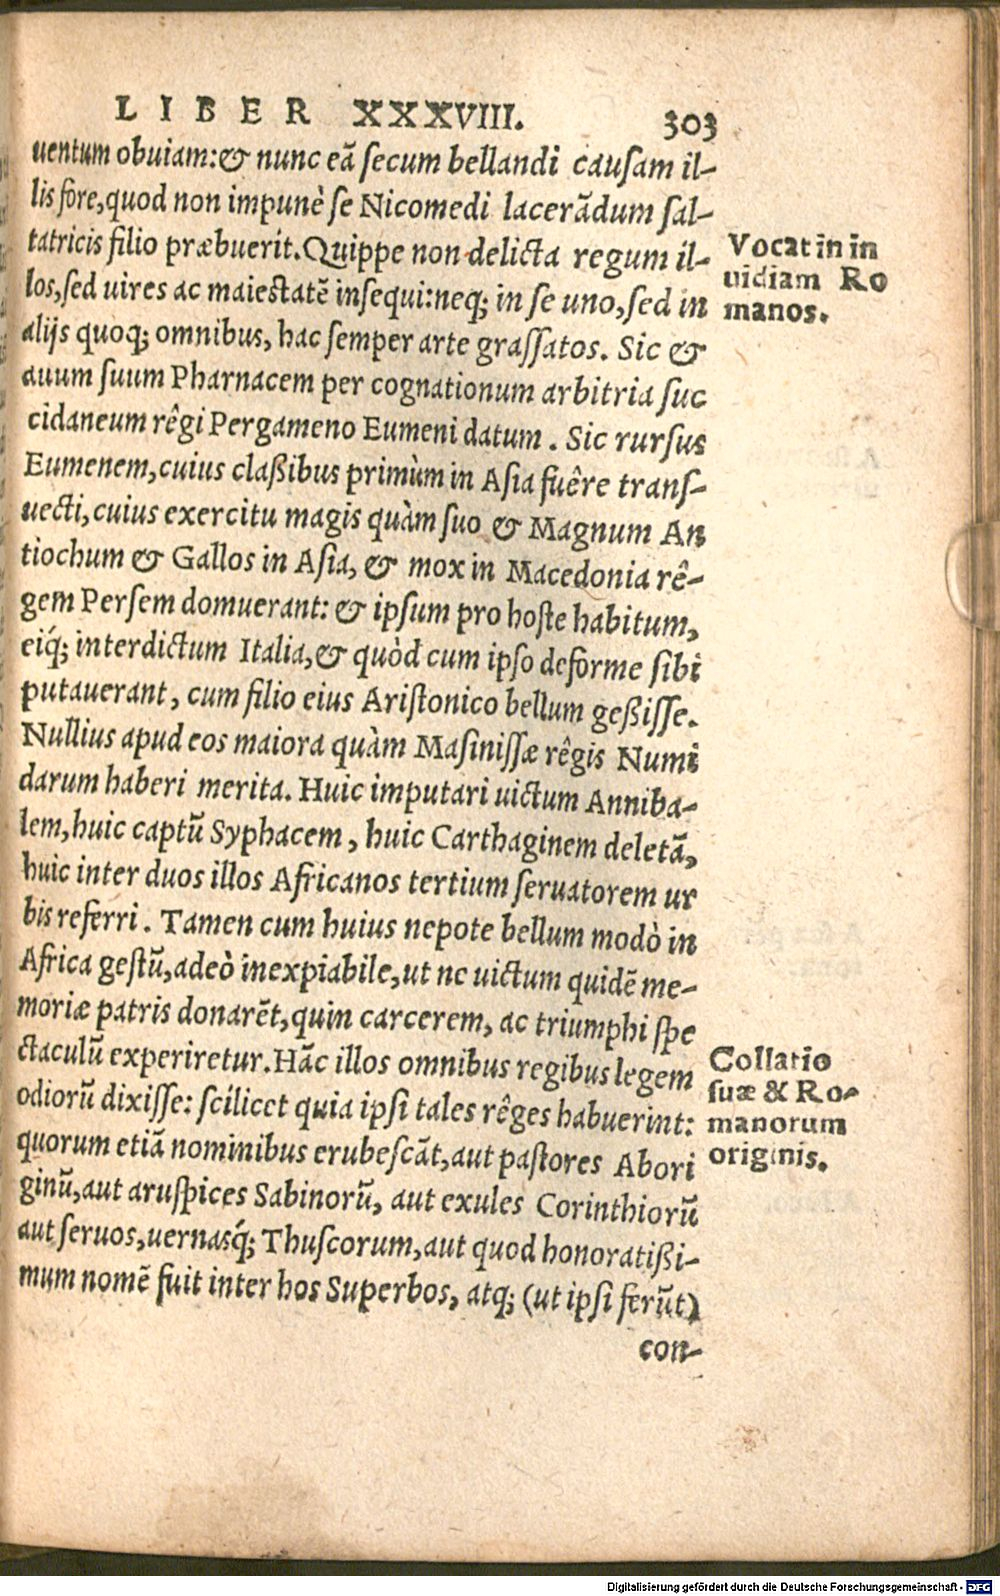 LIBER XXXVIII. 303
uentum obuiam: & nunc eā ſecum bellandi cauſam il-
lis fore, quod non impunè ſe Nicomedi lacerādum ſal-
tatricis filio præbuerit. Quippe non delicta regum il-
los, ſed uires ac maieſtatē inſequi: neq; in ſe uno, ſed in
alijs quoq; omnibus, hac ſemper arte graſſatos. Sic &
auum ſuum Pharnacem per cognationum arbitria ſuc
cidaneum rêgi Pergameno Eumeni datum. Sic rurſus
Eumenem, cuius claßibus primùm in Aſia fuêre tranſ-
uecti, cuius exercitu magis quàm ſuo & Magnum An
tiochum & Gallos in Aſia, & mox in Macedonia rê-
gem Perſem domuerant: & ipſum pro hoſte habitum,
eiq́; interdictum Italia, & quòd cum ipſo deforme ſibi
putauerant, cum filio eius Ariſtonico bellum geßiſſe.
Nullius apud eos maiora quàm Maſiniſſæ rêgis Numi
darum haberi merita. Huic imputari uictum Anniba-
lem, huic captū Syphacem, huic Carthaginem deletā,
huic inter duos illos Africanos tertium ſeruatorem ur
bis referri. Tamen cum huius nepote bellum modò in
Africa geſtū, adeò inexpiabile, ut ne uictum quidē me-
moriæ patris donarēt, quin carcerem, ac triumphi ſpe
ctaculū experiretur. Hāc illos omnibus regibus legem
odiorū dixiſſe: ſcilicet quia ipſi tales rêges habuerint:
quorum etiā nominibus erubeſcāt, aut paſtores Abori
ginū, aut aruſpices Sabinorū, aut exules Corinthiorū
aut ſeruos, uernasq́; Thuſcorum, aut quod honoratißi-
mum nomē fuit inter hos Superbos, atq; (ut ipſi ferūt)
con-
Vocat in in
uidiam Ro
manos.
Collatio
ſuæ & Ro-
manorum
originis.
Digitalisierung gefördert durch die Deutsche Forschungsgemeinschaft - DFG